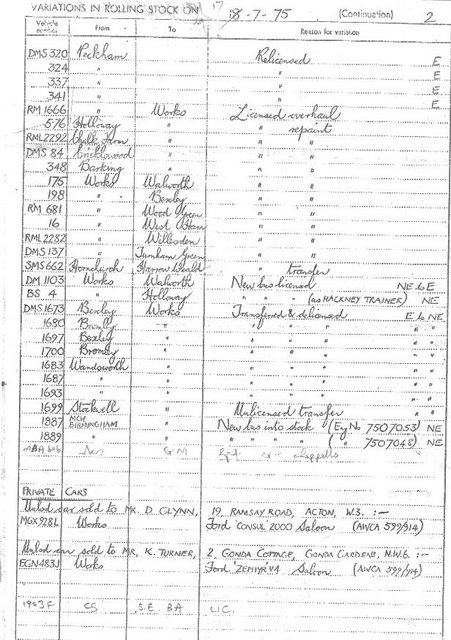 VARIATIONS IN ROLLING STOCK ON 17 8-7-75 (Continuation) 2
Vehicle number From To Reason for variation
DMS 320 Peckham Relicensed E
324 " " E
337 " " E
341 " " E
RM 1666 " Works Licensed overhaul
576 Holloway " " repaint
RML 2292 Chalk Farm " " "
DMS 84 Cricklewood " " "
348 Barking " " "
175 Works Walworth " "
198 " Bexley " "
RM 681 " Wood Green " "
16 " West Ham " "
RML 2282 " Willesden " "
DMS 137 " Turnham Green " "
SMS 662 Hornchurch Harrow Weald " transfer
DM 1103 Works Walworth New bus licensed NE to E
BS 4 Holloway " " " (as HACKNEY TRAINER) NE
DMS 1673 Bexley Works Transferred & delicensed E to NE
1680 Bromley " " " " "
1697 Bexley " " " " "
1700 Bromley " " " " "
1683 Wandsworth " " " " "
1687 " " " " " "
1693 " " " " " "
1699 Stockwell " Unlicensed transfer " "
1887 MCW BIRMINGHAM " New bus into stock (Eng No 7507053) NE
1889 " " " " " " ( " 7507048) NE
PRIVATE CARS
Unlcsd car sold to MR. D. GLYNN, 19, RAMSAY ROAD, ACTON, W.3. :—
MGX 928L Works Ford CONSUL 2000 Saloon (AWCA 599/914)
Unlcsd car sold to MR. K. TURNER, 2, GONDA COTTAGE, GONDA GARDENS, N.W.6. :—
EGN 483J Works Ford 'ZEPHYR' V4 Saloon (AWCA 599/914)
1903F CS S.E. BA LIC.